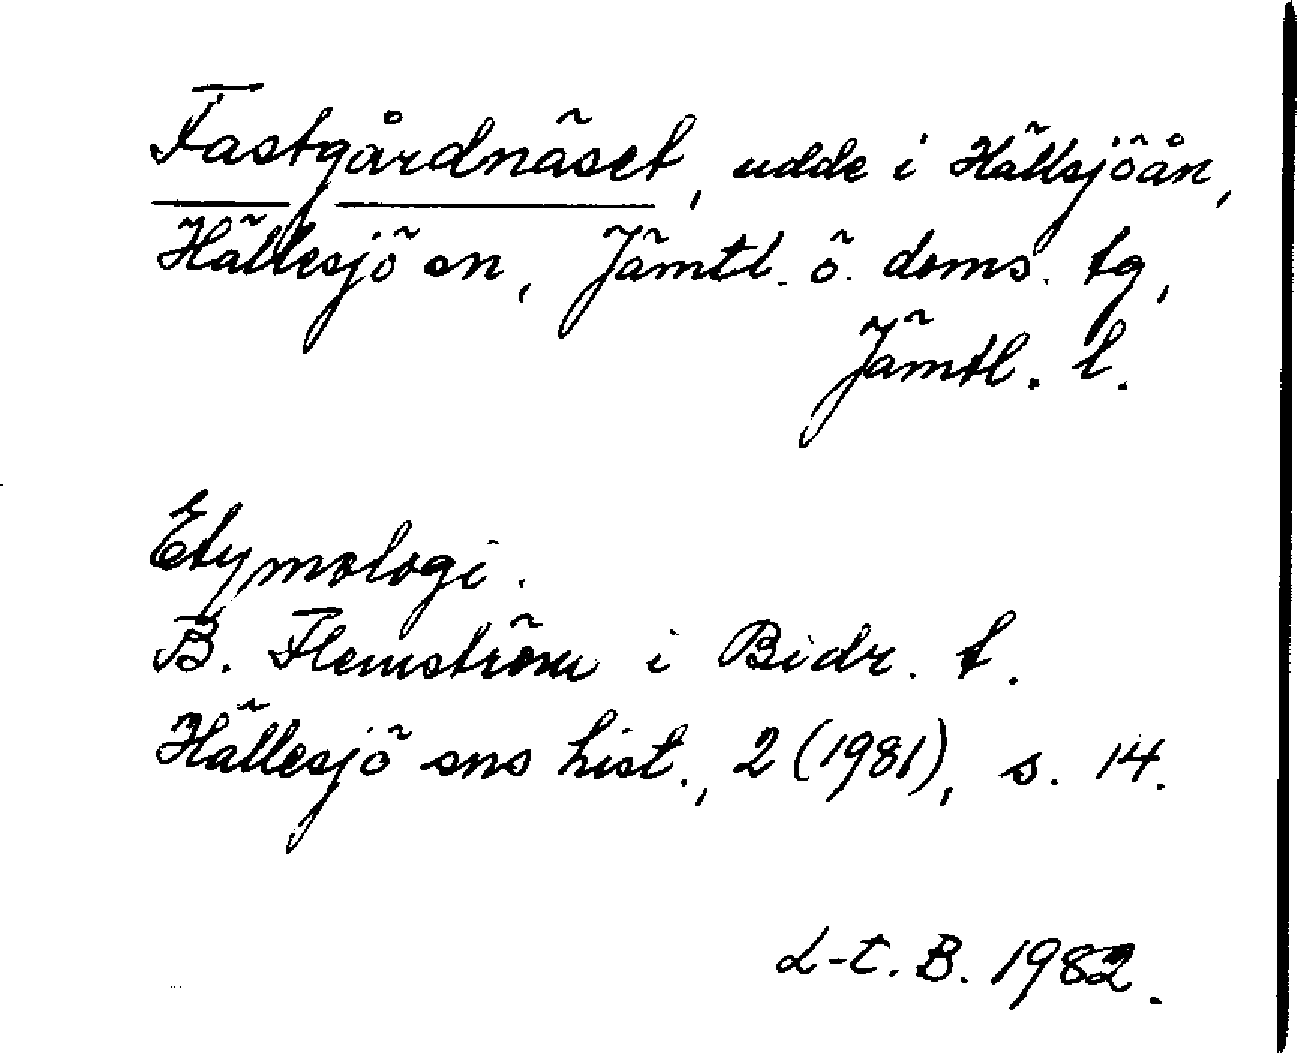 Fastgårdnäset, udde i Hällsjöån,
Hällesjö sn, Jämtl. ö. doms. tg,
Jämtl. l.
Etymologi.
B. Flemström i Bidr. t.
Hällesjö sns hist., 2 (1981), s. 14.
L-C. B. 1982.